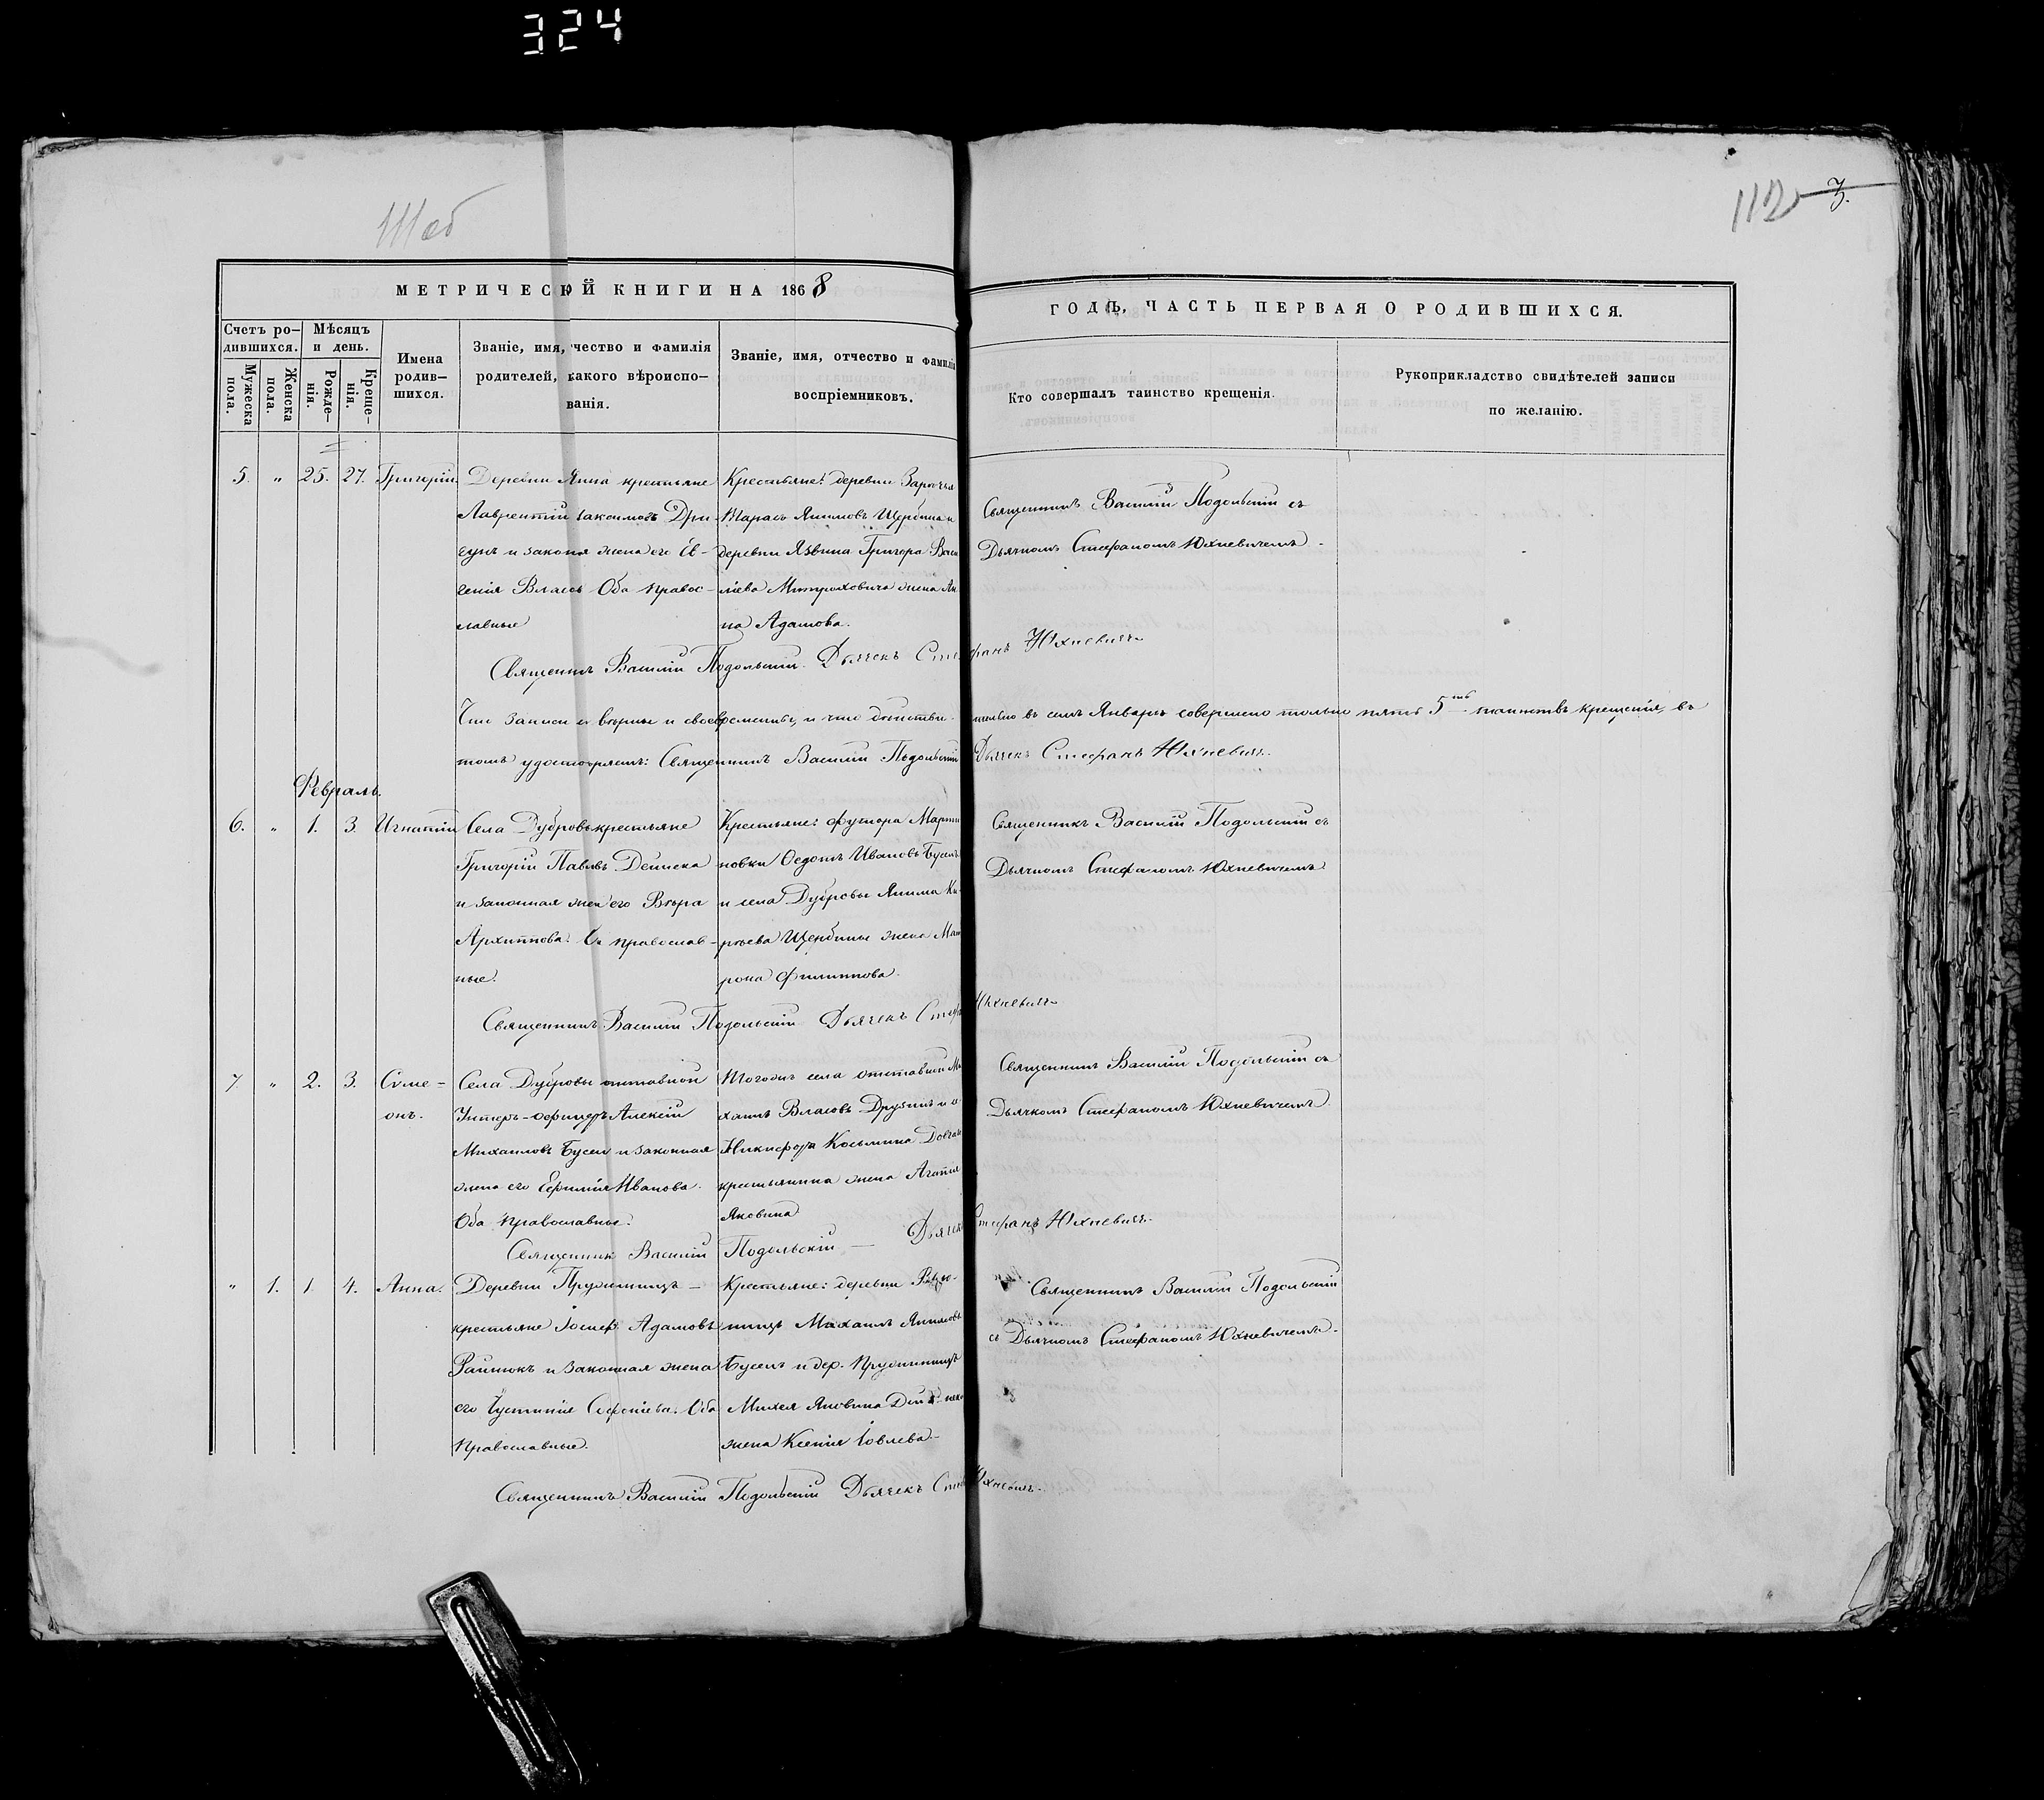 324
111 об
112 3.
МЕТРИЧЕСКОЙ КНИГИ НА 1868
ГОДЪ, ЧАСТЬ ПЕРВАЯ О РОДИВШИХСЯ.
Счетъ ро-
дившихся.
Мужеска
пола.
Женска
пола.
Мѣсяцъ
и день.
Рожде-
нія.
Креще-
нія.
Имена
родив-
шихся.
Званіе, имя, чество и фамилія
родителей, какого вѣроиспо-
ванія.
Званіе, имя, отчество и фамилія
воспріемниковъ.
Кто совершалъ таинство крещенія.
Рукоприкладство свидѣтелей записи
по желанію.
5. " 25. 27. Григорій.
Деревни Яина крестьяне
Лаврентій
и законая жена его Ев-
генія Власова Оба правос-
лавные
Крестьяне: деревни Заречья
Тарасъ Якимовъ Щербина и
деревни Язвина Григора Васи
ліева Митроховича жена Ан
на Адамова.
Священникъ Василій Подольскій съ
Дьячкомъ Стефаномъ Юхневичемъ.
Священикъ Василій Подольскій. Дьячекъ Стефанъ Юхневичъ.
Что записи вѣрны и своевременны, и что дѣйстви-тельно въ семъ Январѣ совершено только пять 5 таинствъ крещенія, въ
томъ удостовѣряемъ: Священникъ Василій Подольскій Дьячекъ Стефанъ Юхневичъ.
Февраль.
6. " 1. 3. Игнатій
Села Дубровы крестьяне
Григорій Павловъ Дейнека
и законная жена его Вѣра
Архиппова. православ-
ные.
Крестьяне: футора Марти
новки Федотъ Ивановъ Буселъ
и села Дубровы Якима Ки-
рѣева Щербины жена Мат
рона Филиппова.
Священникъ Василій Подольскій съ
Дьячкомъ Стефаномъ Юхневичемъ
Священникъ Василій Подольскій Дьячекъ Стефа Юхневичъ
7 " 2. 3. Сѵме-
онъ.
Села Дубровы отставной
Унтеръ-офицеръ Алексій
Михаиловъ Бусел и законная
жена его Ефимія Иванова.
Оба Православные.
Тогожъ села отставной Ми
хаилъ Власовъ
Никифора Косьмина
крестьянина жена Агапія
Яковина
Священникъ Василій Подольскій съ
Дьячкомъ Стефаномъ Юхневичемъ
Священникъ Василій Подольскій — Дьячек Стефанъ Юхневичъ.
" 1. 1. 4. Анна.
Деревни Прудиницъ —
крестьяне Іосифъ Адамовъ
и законная жена
его Іустинія Оба
Православные.
Крестьяне: деревни
ницъ Михаилъ Якимовъ
Бусел и дер. Прудиницъ
Михея Яковина
жена Ксенія Іовлева
Священникъ Василій Подольскій
съ Дьячкомъ Стефаномъ Юхневичемъ.
Священникъ Василій Подольскій Дьячекъ Стеф Юхневичъ.